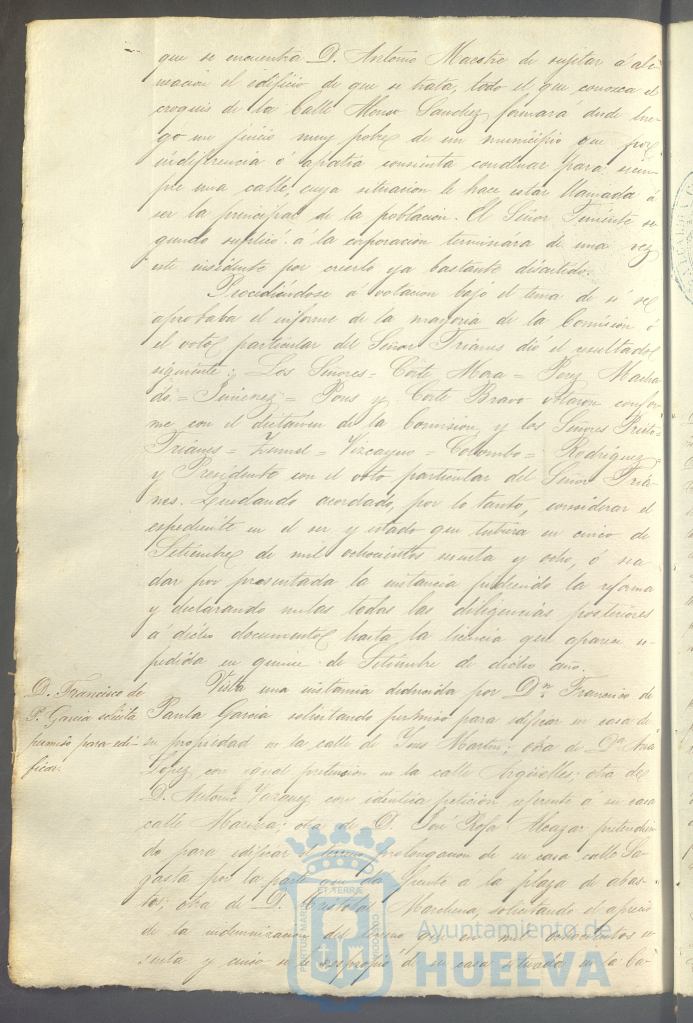 que se encuentra D. Antonio Maestre de sujetar á ali-
neacion el edificio de que se trata, todo el que conosca el
croquis de la Calle Alonso Sanchez formará desde lue-
go un juicio muy pobre de un municipio que por
indiferencia o apatía consienta condenar para siem-
pre una calle, cuya situacion le hace estar llamada á
ser la principal de la poblacion. El Señor Teniente se-
gundo suplicó á la corporacion terminára de una vez
este insidente por cierto ya bastante discutido.
Procediéndose a votacion bajo el tema de si se
aprobaba el informe de la mayoria de la Comision ó
el voto particular del Señor Trianes dió el resultado
siguiente: Los Señores = Corte Mora = Perez Macha-
do = Jimenez = Pons y Corte Bravo votaron confor-
me con el dictámen de la Comision, y los Señores Prieto =
Trianes = = Vizcayno = Colombo = Rodriguez =
y Presidente con el voto particular del Señor Tria-
nes. Quedando acordado, por lo tanto, considerar el
espediente en el ser y estado que tubiera en cinco de
Setiembre de mil ochocientos sesenta y ocho, ó sea
dar por presentada la instancia pidiendo la reforma
y declarando nulas todas las diligencias posteriores
á dicho documento hasta la licencia que aparece es-
pedida en quince de Setiembre de dicho año.
D. Francisco de
P. Garcia solicita
permiso para edi-
ficar.
Vista una instancia deducida por Dn. Francisco de
Paula Garcia solicitando permiso para edificar en casa de
su propiedad en la calle de Ins Martin; otra de Da. Ana
Lopez con igual pretension en la calle Argüelles; otra de
D. Antonio Vazquez con identica peticion referente á su casa
calle Marina; otra de D. José Rofa Alcazar pretendien-
do para edificar el terreno prolongacion de su casa calle Sa-
gasta por la parte que da frente á la plaza de abas-
tos; otra de D. Cristobal Marchena, solicitando el aprecio
de la indemnizacion del terreno que en mil ochocientos se-
senta y cinco se le espropió de su casa situada en la Ca-
PORTUS MARIS
ET TERRAE
CUSTODIA
Ayuntamiento de
HUELVA